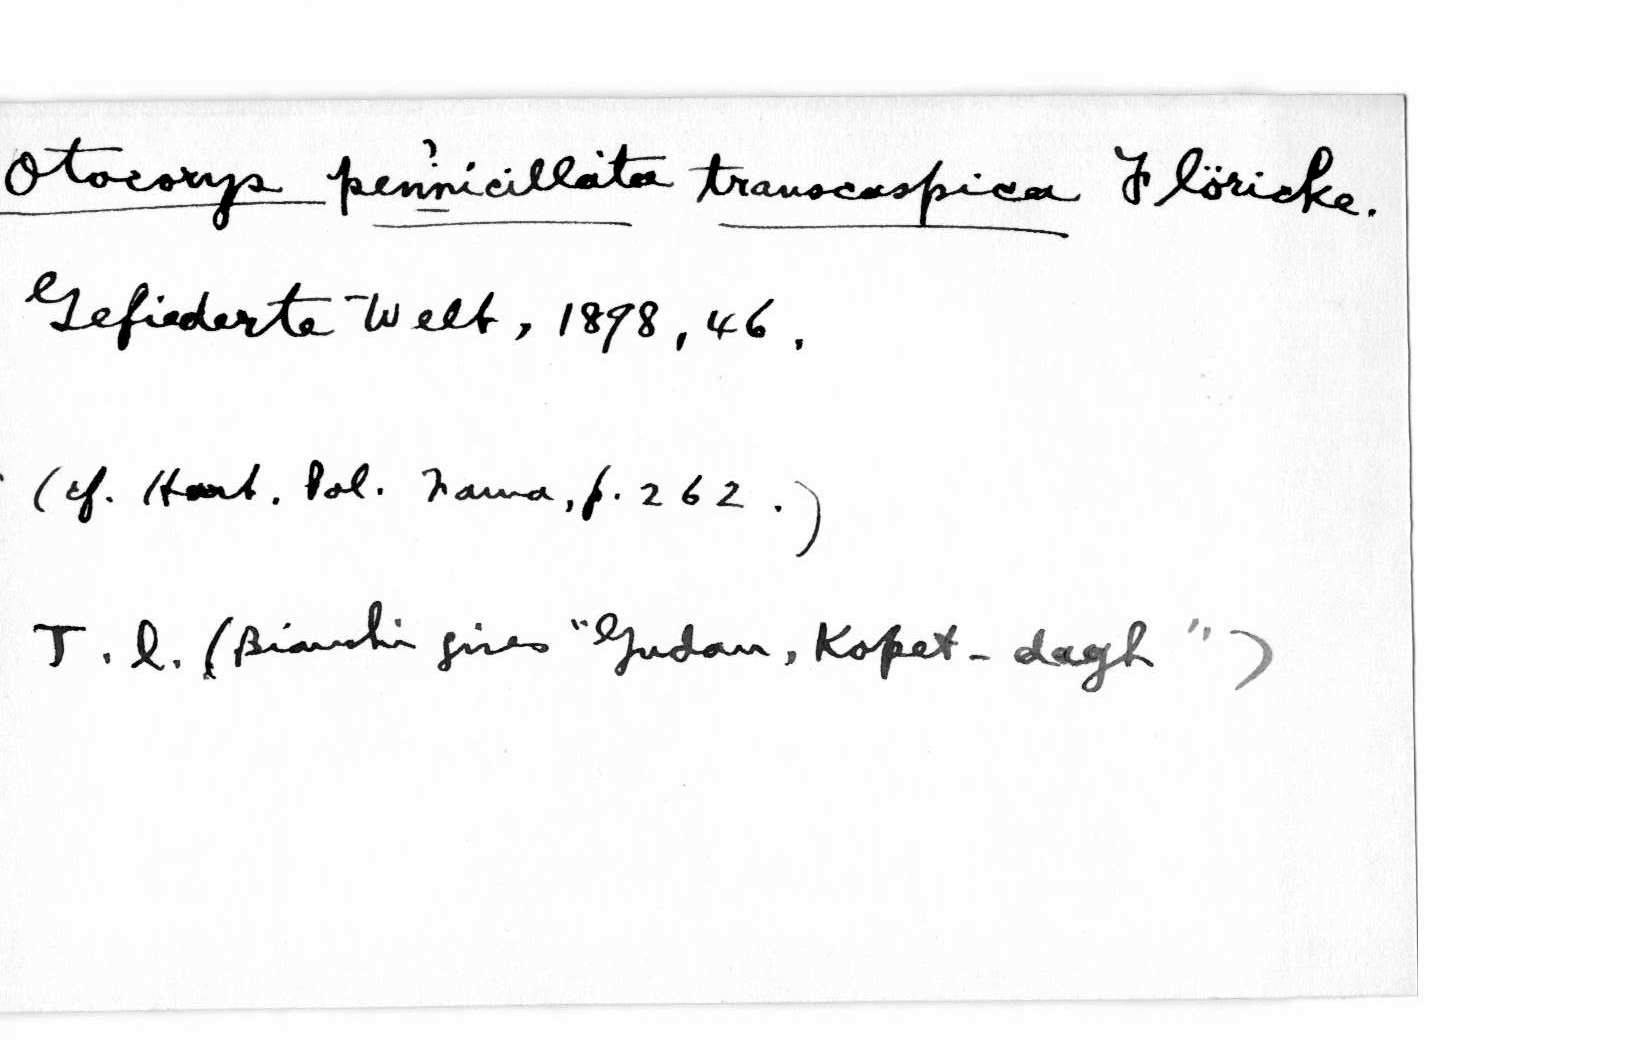 Otocorys pennicillata transcaspica Flöricke.
?
Gefiederte Welt, 1898, 46.
(cf. Hart. Pal. Fauna, p. 262.)
T. l. (Bianchi gives "Gudan, Kopet-dagh")